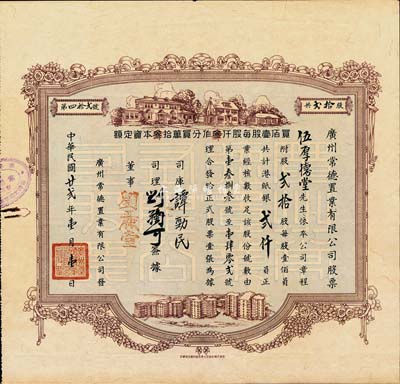 第四拾貳號
共貳拾股
額定資本拾萬買分作仟股每股壹佰買
廣州常德置業有限公司股票
伍厚德堂先生依本公司章程
附股貳拾股每股壹佰員
共計港紙銀貳仟員正
業經核數收足該股份號數由
第壹叁捌叁號至壹肆零貳號
理合發回正式股票壹張為據
司庫 譚勁民
司理
董事 劉承宣
發據
廣州常德置業有限公司發
中華民國廿貳年壹月壹日